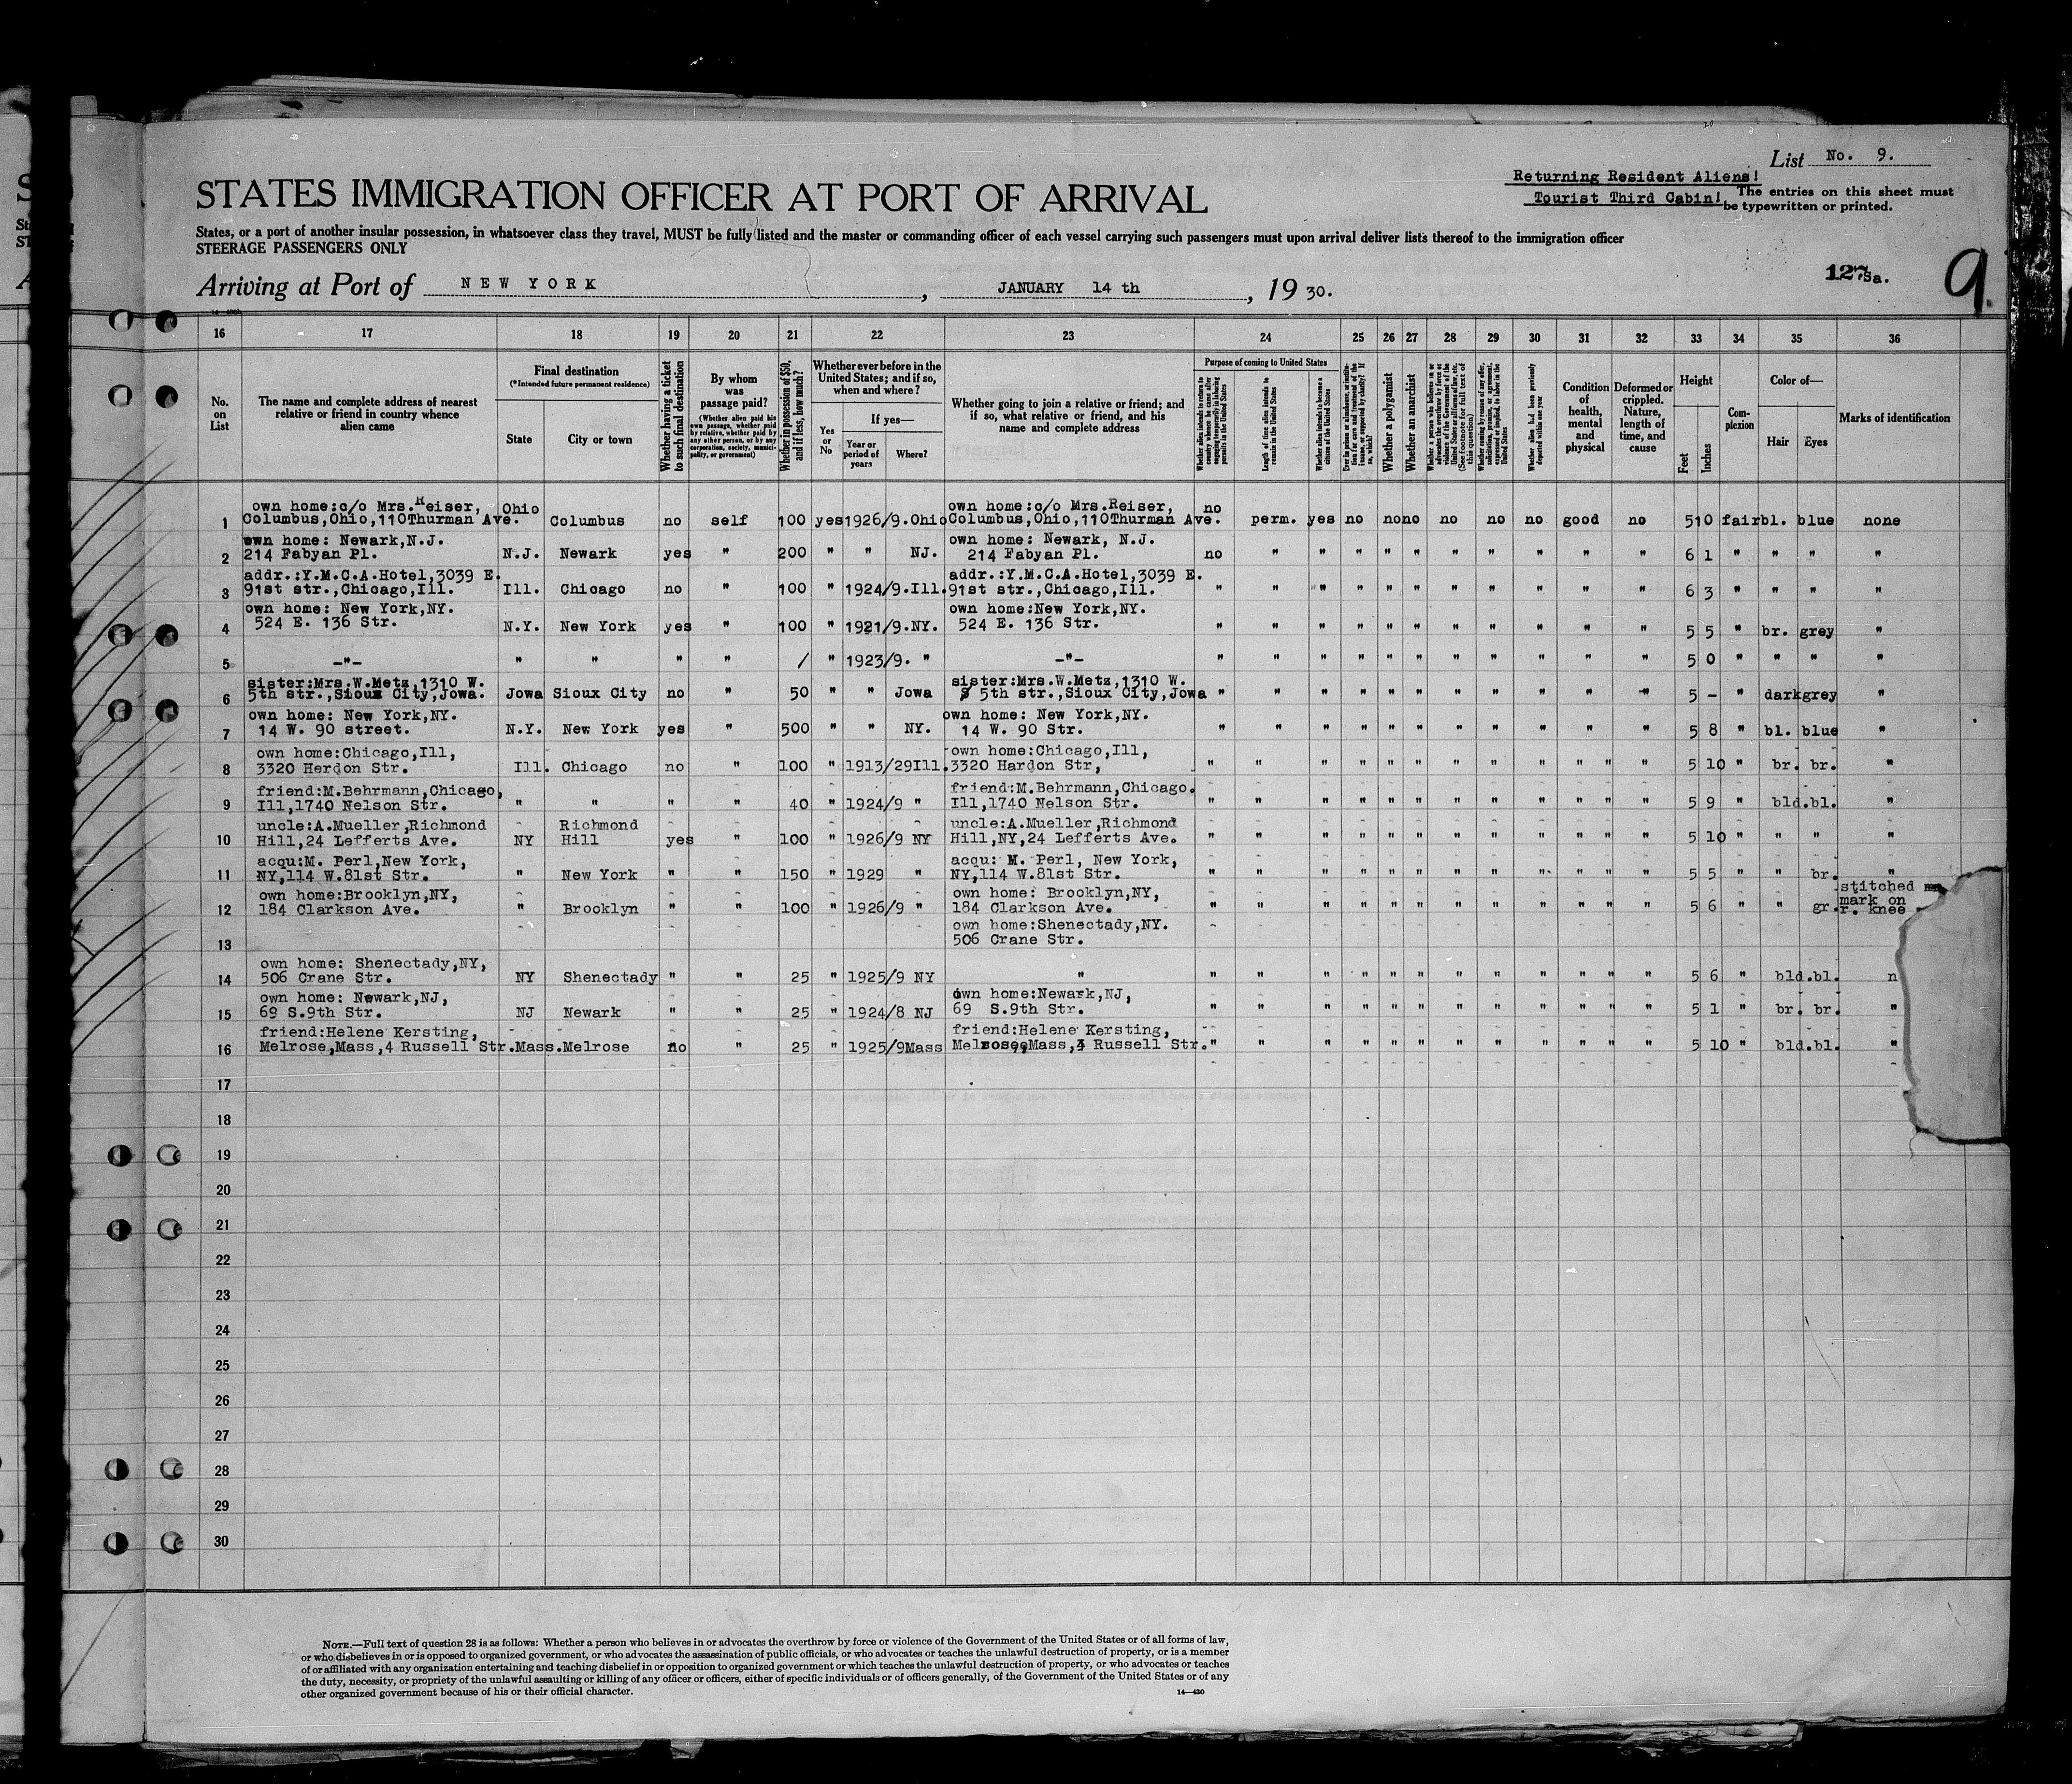 List No. 9.
Returning Resident Aliens!
Tourist Third Cabin!
The entries on this sheet must
be typewritten or printed.
STATES IMMIGRATION OFFICER AT PORT OF ARRIVAL
States, or a port of another insular possession, in whatsoever class they travel, MUST be fully listed and the master or commanding officer of each vessel carrying such passengers must upon arrival deliver lists thereof to the immigration officer
STEERAGE PASSENGERS ONLY
Arriving at Port of NEW YORK , JANUARY 14 th , 19 30.
9
16 17 18 19 20 21 22 23 24 25 26 27 28 29 30 31 32 33 34 35 36
No. on List
The name and complete address of nearest relative or friend in country whence alien came
Final destination
(*Intended future permanent residence)
State
City or town
Whether having a ticket to such final destination
By whom was passage paid?
(Whether alien paid his own passage, whether paid by relative, whether paid by any other person, or by any corporation, society, municipality, or government)
Whether in possession of $50, and if less, how much?
Whether ever before in the United States; and if so, when and where?
Yes or No
If yes—
Year or period of years
Where?
Whether going to join a relative or friend; and if so, what relative or friend, and his name and complete address
Purpose of coming to United States
Whether alien intends to return to country whence he came after engaging temporarily in laboring pursuits in the United States
Length of time alien intends to remain in the United States
Whether alien intends to become a citizen of the United States
Whether a polygamist
Whether an anarchist
Whether alien had been previously deported within one year
Condition of health, mental and physical
Deformed or crippled. Nature, length of time, and cause
Height
Feet
Inches
Complexion
Color of—
Hair
Eyes
Marks of identification
own home:c/o Mrs.Reiser, Ohio own home:c/o Mrs.Reiser, no
1 Columbus,Ohio,110Thurman Ave. Columbus no self 100 yes 1926/9.Ohio Columbus,Ohio,110Thurman Ave. perm. yes no no no no no no good no 5 10 fair bl. blue none
own home: Newark,N.J. own home: Newark, N.J.
2 214 Fabyan Pl. N.J. Newark yes " 200 " " NJ. 214 Fabyan Pl. no " " " " " " " " " " 6 1 " " " "
addr.:Y.M.C.A.Hotel,3039 E. addr.:Y.M.C.A.Hotel,3039 E.
3 91st str.,Chicago,Ill. Ill. Chicago no " 100 " 1924/9.Ill. 91st str.,Chicago,Ill. " " " " " " " " " " " 6 3 " " " "
own home: New York,NY. own home:New York,NY.
4 524 E. 136 Str. N.Y. New York yes " 100 " 1921/9.NY. 524 E. 136 Str. " " " " " " " " " " " 5 5 " br. grey "
5 -"- " " " " / " 1923/9. " -"- " " " " " " " " " " " 5 0 " " " "
sister:Mrs.W.Metz,1310 W. sister:Mrs.W.Metz,1310 W.
6 5th str.,Sioux City,Jowa. Jowa Sioux City no " 50 " " Jowa 5th str.,Sioux City,Jowa " " " " " " " " " " " 5 - " dark grey "
own home: New York,NY. own home: New York,NY.
7 14 W. 90 street. N.Y. New York yes " 500 " " NY. 14 W. 90 Str. " " " " " " " " " " " 5 8 " bl. blue "
own home:Chicago,Ill, own home:Chicago,Ill,
8 3320 Herdon Str. Ill. Chicago no " 100 " 1913/29Ill. 3320 Hardon Str, " " " " " " " " " " " " 5 10 " br. br. "
friend:M.Behrmann,Chicago, friend:M.Behrmann,Chicago.
9 Ill,1740 Nelson Str. " " " " 40 " 1924/9 " Ill,1740 Nelson Str. " " " " " " " " " " " " 5 9 " bld.bl. "
uncle:A.Mueller,Richmond Richmond uncle:A.Mueller,Richmond
10 Hill,24 Lefferts Ave. NY Hill yes " 100 " 1926/9 NY Hill,NY,24 Lefferts Ave. " " " " " " " " " " " " 5 10 " " " "
acqu:M. Perl,New York, acqu: M. Perl, New York,
11 NY,114 W.81st Str. " New York " " 150 " 1929 " NY,114 W.81st Str. " " " " " " " " " " " " 5 5 " " br. "
own home:Brooklyn,NY, own home: Brooklyn,NY, stitched
12 184 Clarkson Ave. " Brooklyn " " 100 " 1926/9 " 184 Clarkson Ave. " " " " " " " " " " " " 5 6 " " gr. mark on
r. knee
own home:Shenectady,NY.
13 506 Crane Str.
own home: Shenectady,NY,
14 506 Crane Str. NY Shenectady " " 25 " 1925/9 NY " " " " " " " " " " " " " 5 6 " bld.bl. n
own home: Newark,NJ, own home:Newark,NJ,
15 69 S.9th Str. NJ Newark " " 25 " 1924/8 NJ 69 S.9th Str. " " " " " " " " " " " " 5 1 " br. br. "
friend:Helene Kersting, friend:Helene Kersting,
16 Melrose,Mass,4 Russell Str. Mass. Melrose no " 25 " 1925/9Mass Melrose,Mass, Russell Str. " " " " " " " " " " " " 5 10 " bld.bl. "
17
18
19
20
21
22
23
24
25
26
27
28
29
30
NOTE.—Full text of question 28 is as follows: Whether a person who believes in or advocates the overthrow by force or violence of the Government of the United States or of all forms of law,
or who disbelieves in or is opposed to organized government, or who advocates the assassination of public officials, or who advocates or teaches the unlawful destruction of property, or is a member
of or affiliated with any organization entertaining and teaching disbelief in or opposition to organized government or which teaches the unlawful destruction of property, or who advocates or teaches
the duty, necessity, or propriety of the unlawful assaulting or killing of any officer or officers, either of specific individuals or of officers generally, of the Government of the United States or of any
other organized government because of his or their official character.
14—430